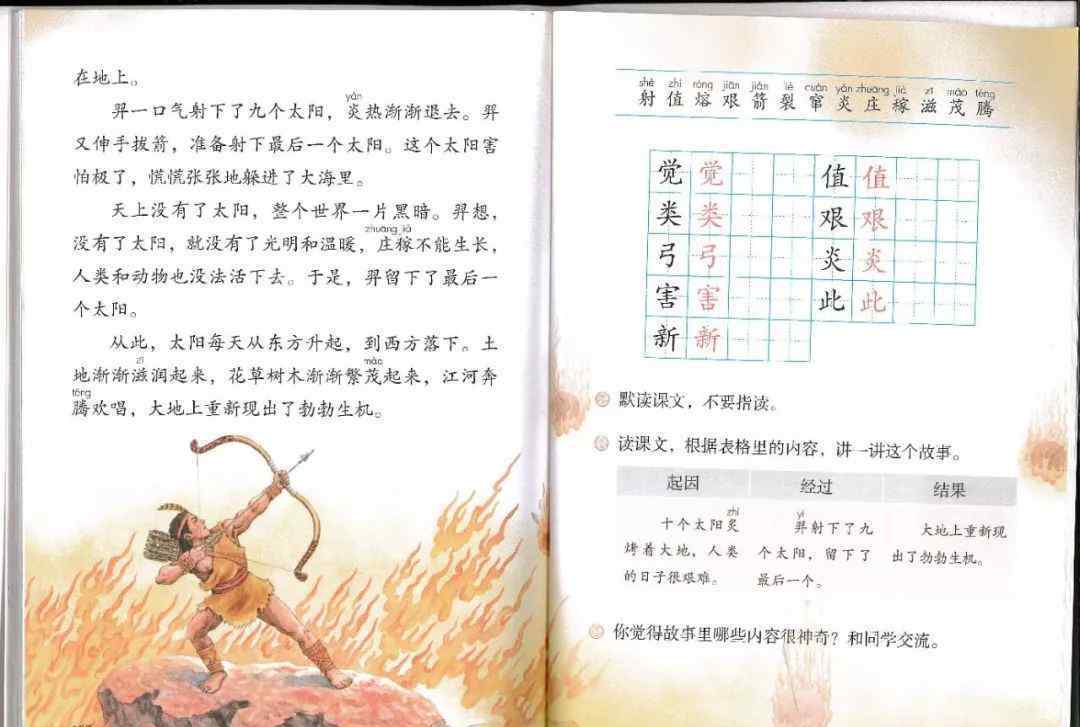 在地上。
yán
羿一口气射下了九个太阳，炎热渐渐退去。羿
又伸手拔箭，准备射下最后一个太阳。这个太阳害
怕极了，慌慌张张地躲进了大海里。
天上没有了太阳，整个世界一片黑暗。羿想，
zhuāng jià
没有了太阳，就没有了光明和温暖，庄稼不能生长，
人类和动物也没法活下去。于是，羿留下了最后一
个太阳。
从此，太阳每天从东方升起，到西方落下。土
zī mào
地渐渐滋润起来，花草树木渐渐繁茂起来，江河奔
téng
腾欢唱，大地上重新现出了勃勃生机。
shè zhí róng jiān jiàn liè cuàn yán zhuāng jià zī mào téng
射 值 熔 艰 箭 裂 窜 炎 庄 稼 滋 茂 腾
觉 觉 值 值
类 类 艰 艰
弓 弓 炎 炎
害 害 此 此
新 新
默读课文，不要指读。
读课文，根据表格里的内容，讲一讲这个故事。
起因 经过 结果
zhì yì
十个太阳炙 羿射下了九 大地上重新现
烤着大地，人类 个太阳，留下了 出了勃勃生机。
的日子很艰难。 最后一个。
你觉得故事里哪些内容很神奇？和同学交流。